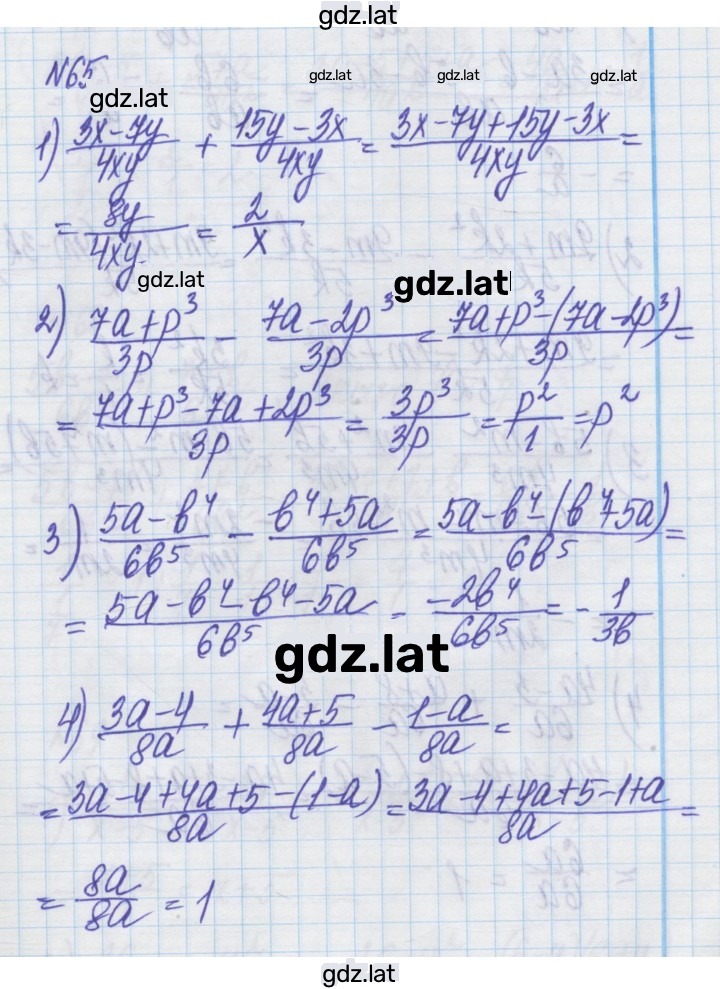 gdz.lat
№65
gdz.lat gdz.lat gdz.lat
gdz.lat
1) (3x-7y)/(4xy) + (15y-3x)/(4xy) = (3x-7y+15y-3x)/(4xy) =
= 8y/(4xy) = 2/x
gdz.lat gdz.lat
2) (7a+p³)/(3p) - (7a-2p³)/(3p) = (7a+p³-(7a-2p³))/(3p) =
= (7a+p³-7a+2p³)/(3p) = 3p³/(3p) = p²/1 = p²
3) (5a-b⁴)/(6b⁵) - (b⁴+5a)/(6b⁵) = (5a-b⁴-(b⁴+5a))/(6b⁵) =
= (5a-b⁴-b⁴-5a)/(6b⁵) = (-2b⁴)/(6b⁵) = - 1/(3b)
gdz.lat
4) (3a-4)/(8a) + (4a+5)/(8a) - (1-a)/(8a) =
= (3a-4+4a+5-(1-a))/(8a) = (3a-4+4a+5-1+a)/(8a) =
= 8a/(8a) = 1
gdz.lat